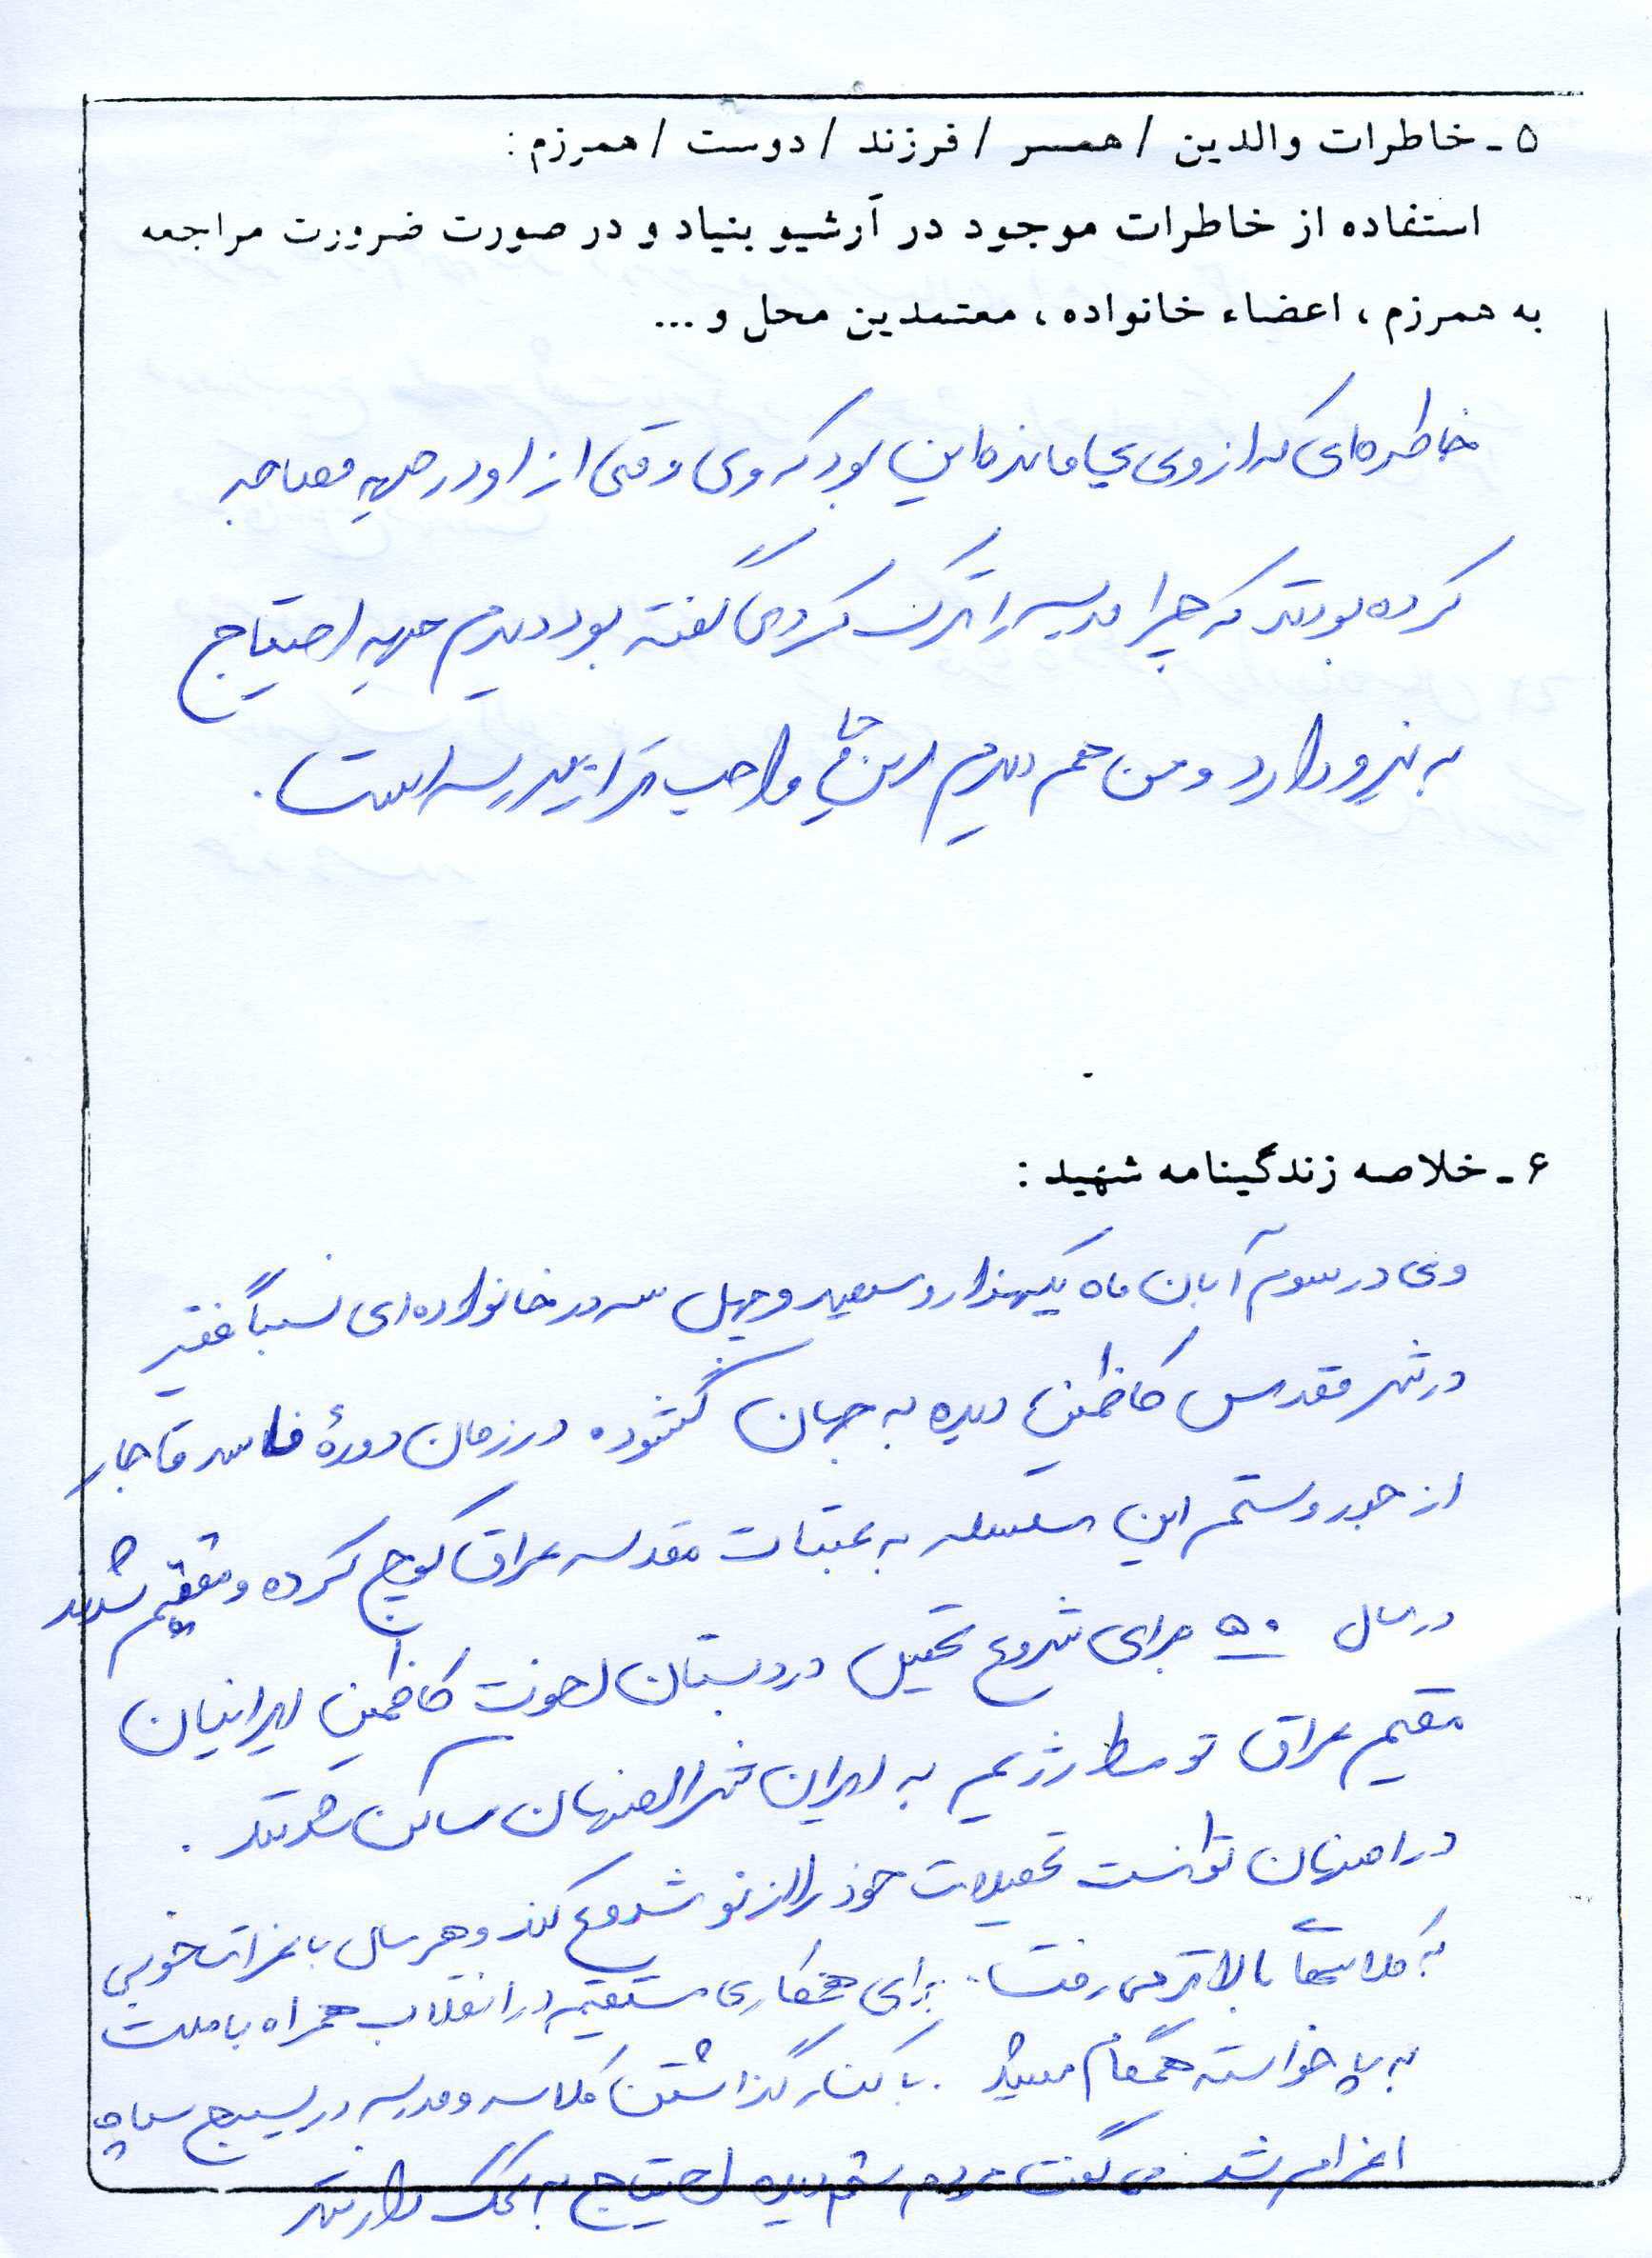 ۵ - خاطرات والدین / همسر / فرزند / دوست / همرزم :
استفاده از خاطرات موجود در آرشیو بنیاد و در صورت ضرورت مراجعه
به همرزم ، اعضاء خانواده ، معتمدین محل و ...
خاطره‌ای که از وی بجا مانده این بود که وی وقتی از او در جبهه مصاحبه
کرده بودند که چرا مدرسه را ترک کردی گفته بود دیدم جبهه احتیاج
به نیرو دارد و من هم دیدم این جا واجب تر از مدرسه است .
۶ - خلاصه زندگینامه شهید :
وی در سوم آبان ماه یکهزار و سیصد و چهل سه در خانواده‌ای نسبتاً فقیر
در شهر مقدس کاظمین دیده به جهان گشوده در زمان دورۀ فاسد قاجار
از جور و ستم این سلسله به عتبات مقدسه عراق کوچ کرده و مقیم شدند
در سال ۵۰ برای شروع تحصیل در دبستان اخوت کاظمین ایرانیان
مقیم عراق توسط رژیم به ایران شهر اصفهان ساکن شدند .
در اصفهان توانست تحصیلات خود را از نو شروع کند و هر سال با نمرات خوبی
به کلاسهای بالاتر می رفت . برای همکاری مستقیم در انقلاب همراه با ملت
به پا خواسته همگام میشد . با کنار گذاشتن کلاس و مدرسه در بسیج سپاه
اعزام شد می گفت مردم ستم دیده احتیاج به کمک دارند